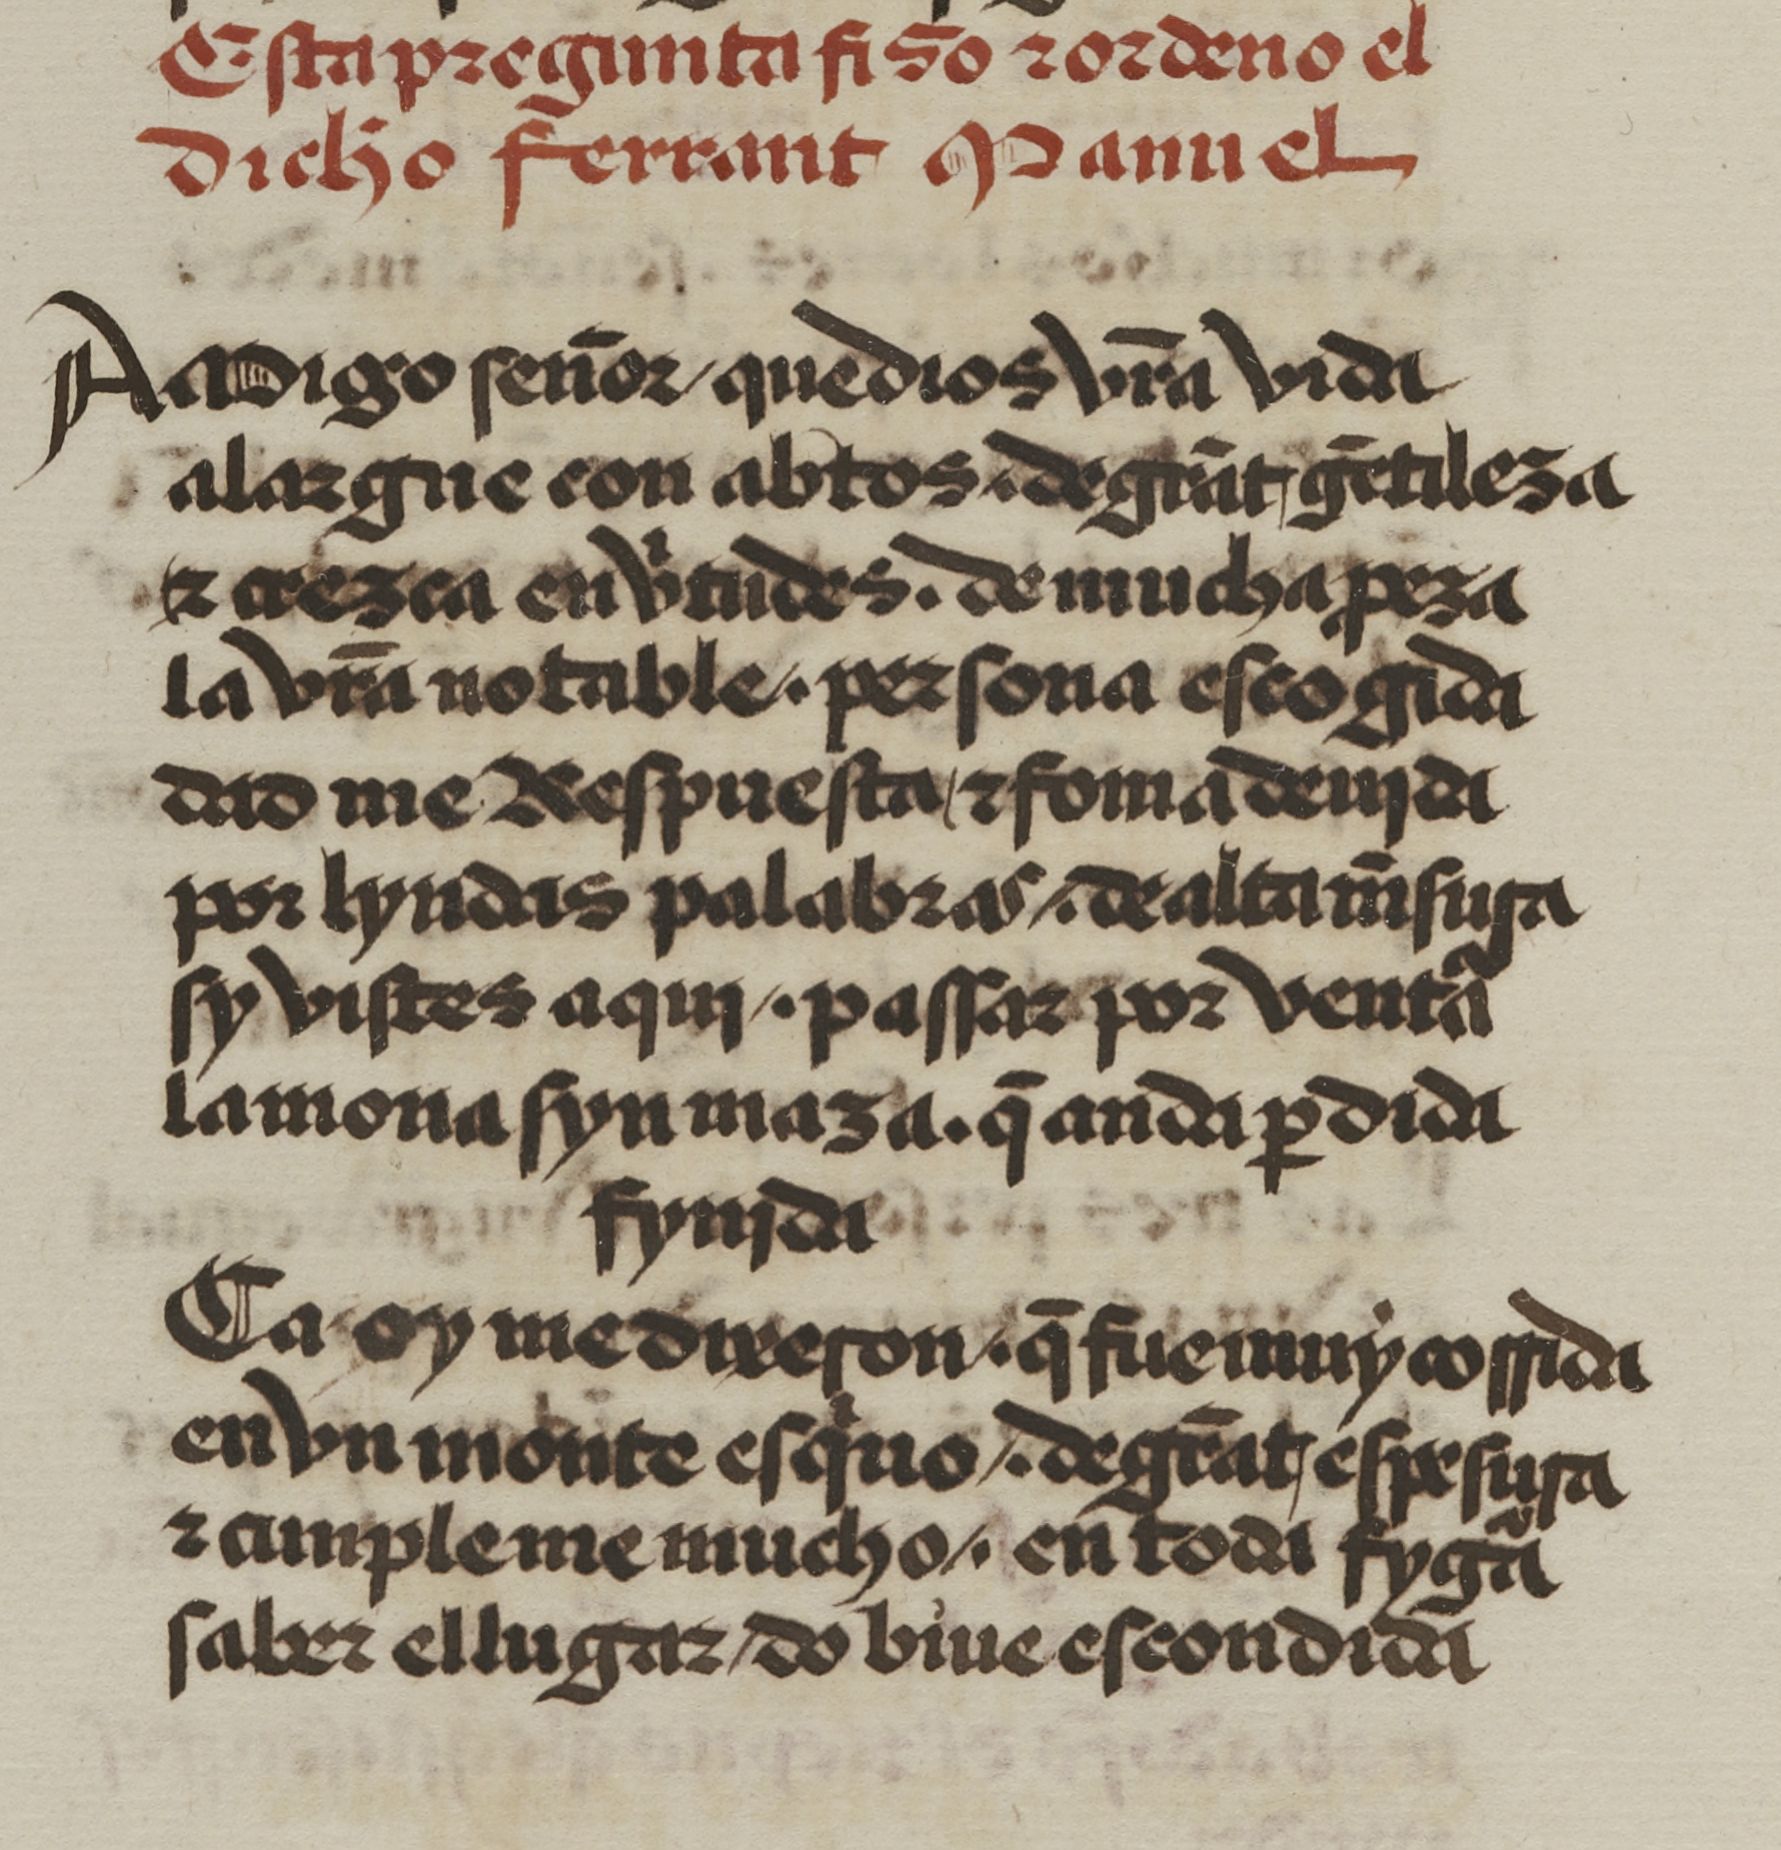 Esta pregunta fiso τ ordeno el
dicho ferrant Manuel
Amigo señor / que dios vr̄a vida
alargue con abtos . de grāt gētileza
τ crezca en vͥtudes . de mucha pͦeza
la vr̄a notable . persona escogida
dad me Respuesta / τ fomᵃ deujda
por lyndas palabras / . de alta mēsura
sy vistes aquj / . passar por ventᵃ
la mona syn maza . q̄ anda ꝑdida
fynjda
Ca oy me dixeron / . q̄ fue muy cossida
en vn monte esqͥuo / . de grāt espesura
τ cunple me mucho / . en toda fygᵃ
saber el lugar / do biue escondida